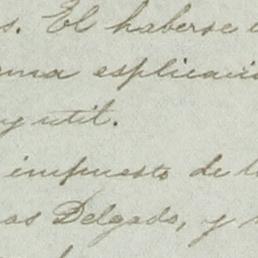 s. El haberse
ma esplicació
y util.
impuesto de l
as Delgado, y